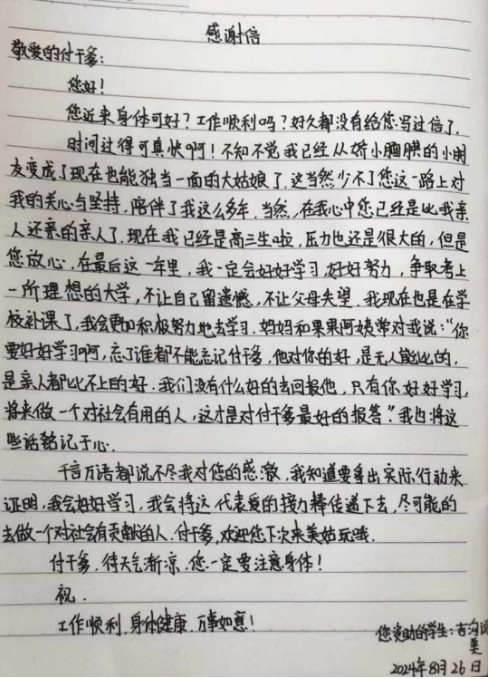 感谢信
敬爱的付干多：
您好！
您近来身体可好？工作顺利吗？好久都没有给您写过信了，
时间过得可真快啊！不知不觉我已经从娇小腼腆的小朋
友变成了现在也能独当一面的大姑娘了，这当然少不了您这一路上对
我的关心与坚持，陪伴了我这么多年，当然，在我心中您已经是比我亲
人还亲的亲人了，现在我已经是高三生啦，压力也还是很大的，但是
您放心，在最后这一年里，我一定会好好学习，好好努力，争取考上
一所理想的大学，不让自己留遗憾，不让父母失望，我现在也是在学
校补课了，我会更加积极努力地去学习，妈妈和果果阿姨常对我说：“你
要好好学习啊，忘了谁都不能忘记付干多，他对你的好，是无人能比的，
是亲人都比不上的好，我们没有什么好的去回报他，只有你好好学习，
将来做一个对社会有用的人，这才是对付干多最好的报答”我也将这
些话铭记于心，
千言万语都说不尽我对您的感激，我知道要拿出实际行动来
证明，我会好好学习，我会将这代表爱的接力棒传递下去，尽可能的
去做一个对社会有贡献的人，付干多，欢迎您下次来美姑玩哦，
付干多，待天气渐凉，您一定要注意身体！
祝，
工作顺利，身体健康，万事如意！
您资助的学生：吉
美
2024年8月26日